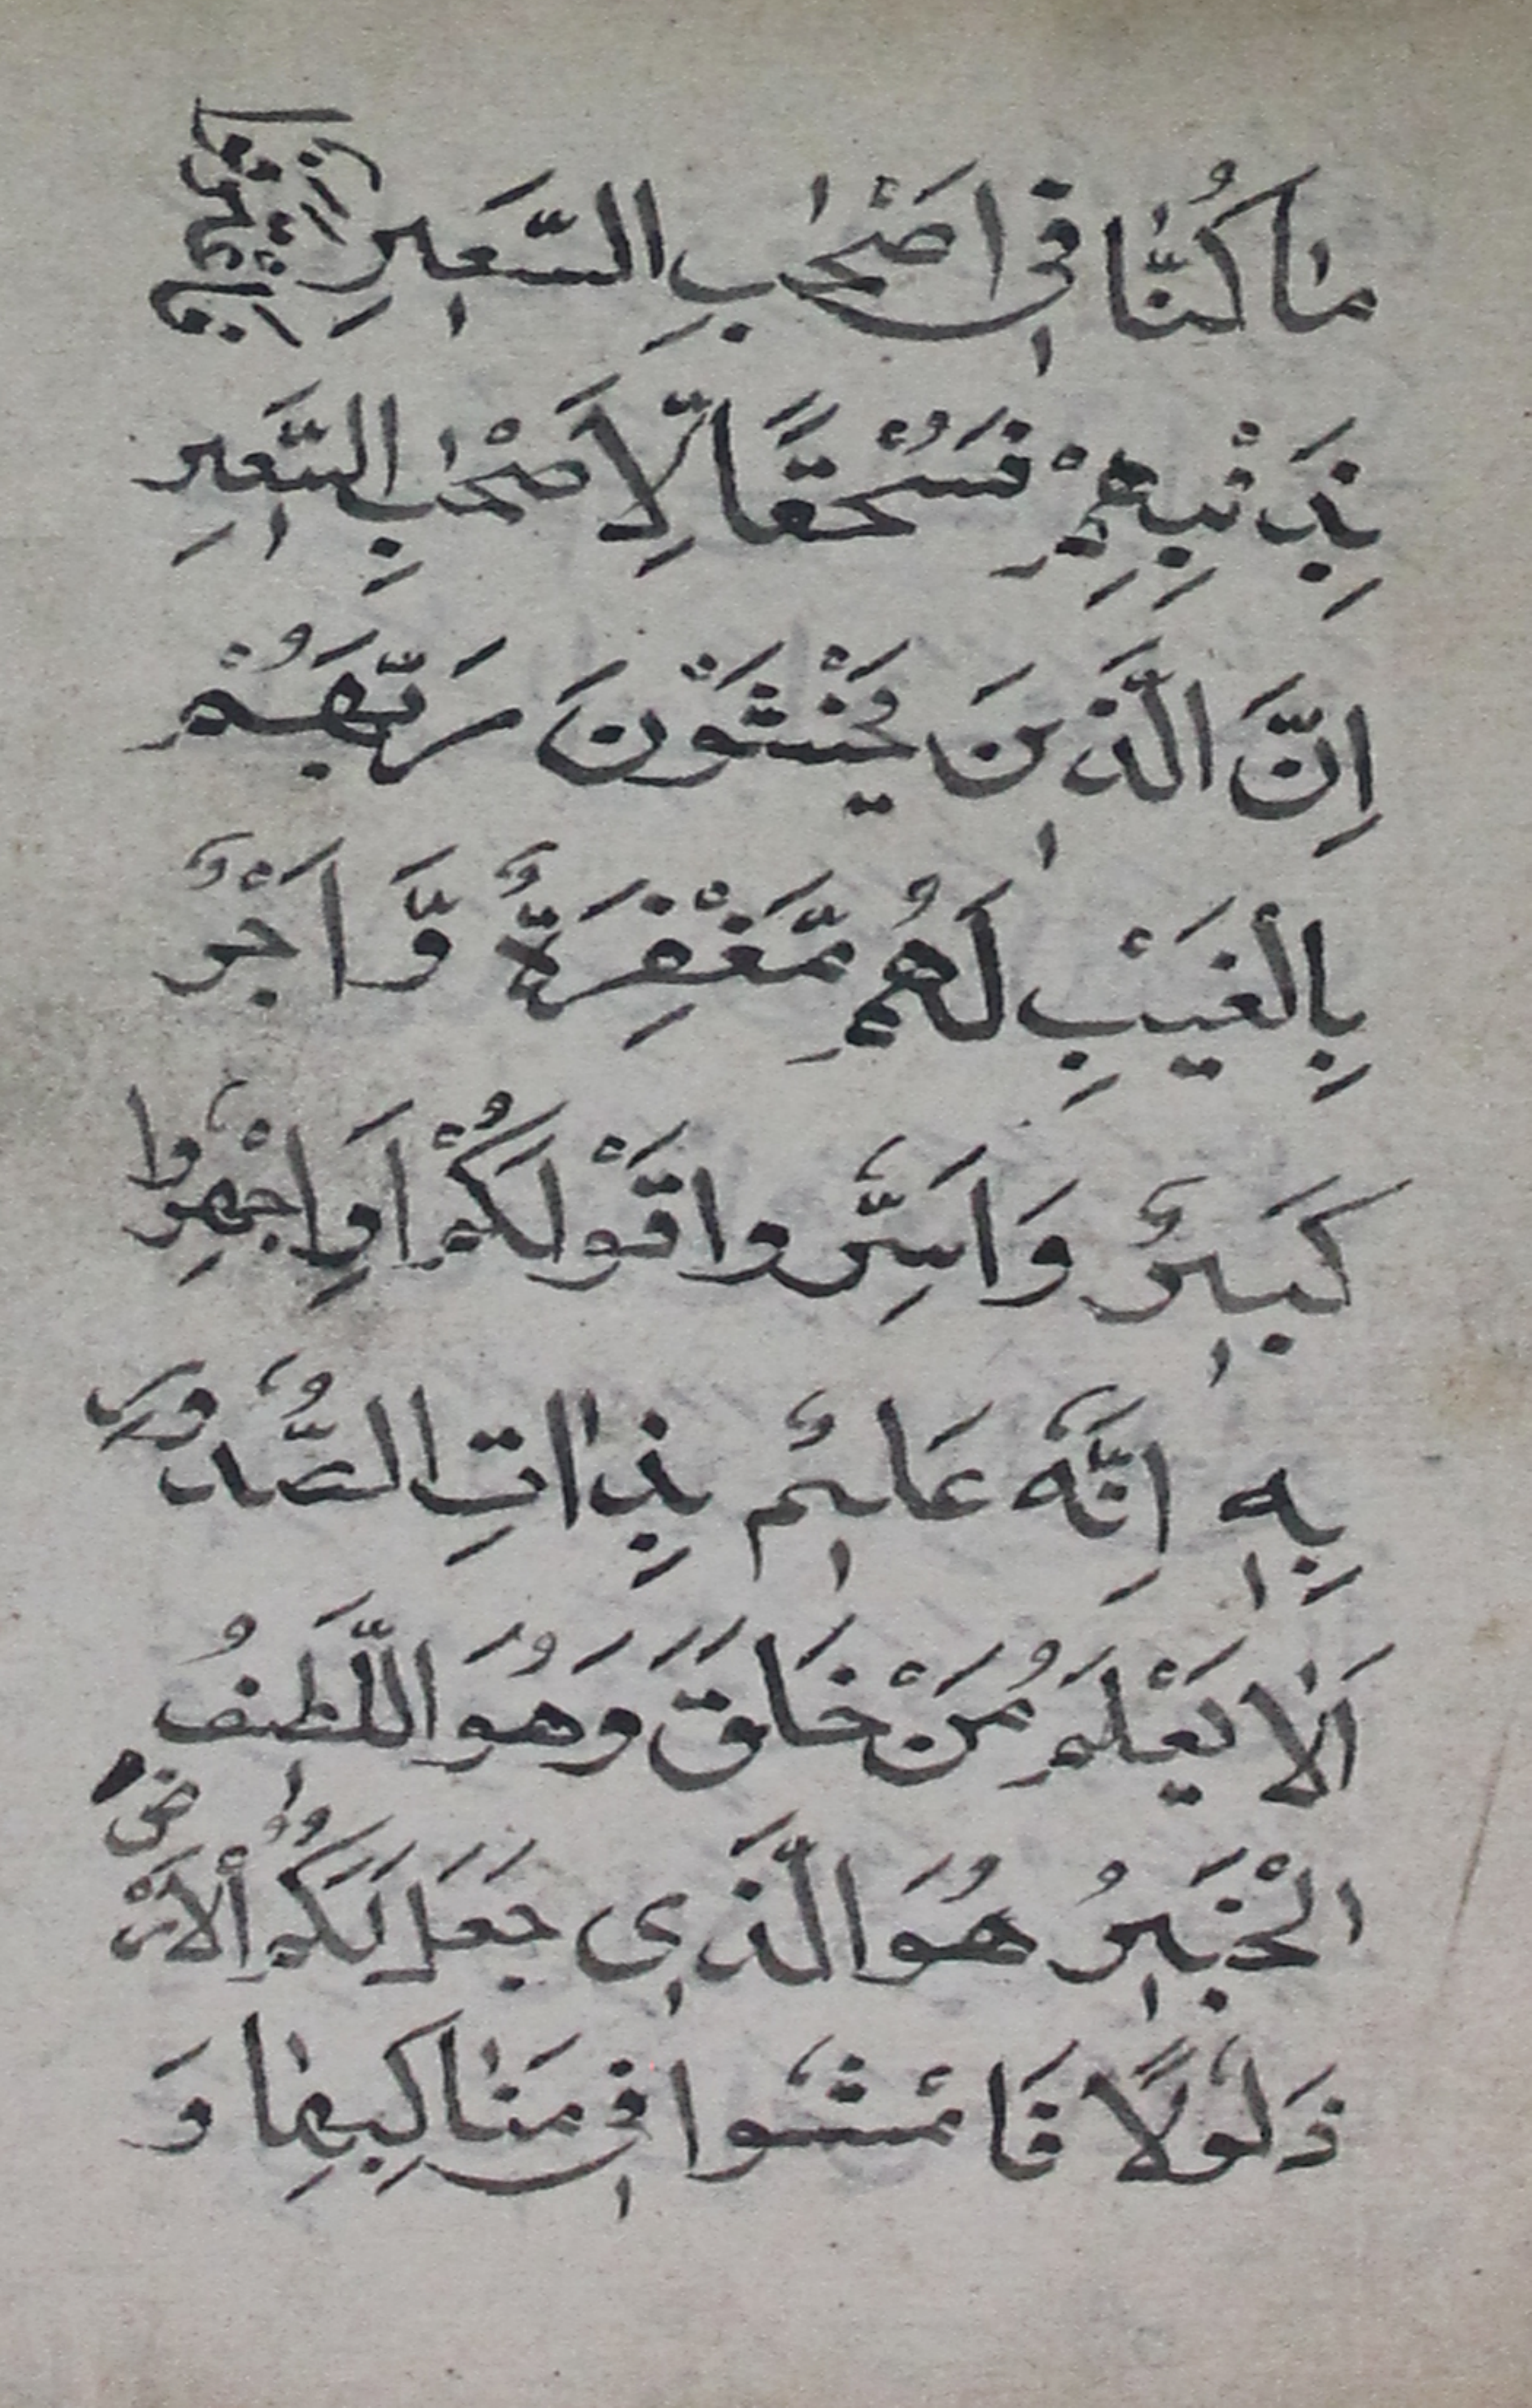 مٰا كُنّٰا فىٖ اَصْحٰبِ السَّعىٖرِ فَاعْتَرَفُوا
بِذَنْبِهِمْ فَسُحْقًا لِّاَصْحٰبِ السَّعىٖرِ
اِنَّ الَّذىٖنَ يَخْشَوْنَ رَبَّهَُمْ
بِالْغَيْبِ لَهُم مَّغْفِرَةٌ وَّاَجْرٌ
كَبىٖرٌ وَاَسِرُّوا قَوْلَكُمْ اَوِاجْهِرُوا
بِهٖ اِنَّهُ عَلىٖمٌ بِذٰاتِ الصُّدُورِ
اَلٰا يَعْلَمُ مَنْ خَلَقَ وَهُوَ اللَّطىٖفُ
الْخَبىٖرُ هُوَ الَّذىٖ جَعَلَ لَكُمُ الْاَرْضَ
ذَلُولًا فَامْشُوا فىٖ مَنٰاكِبِهٰا وَ